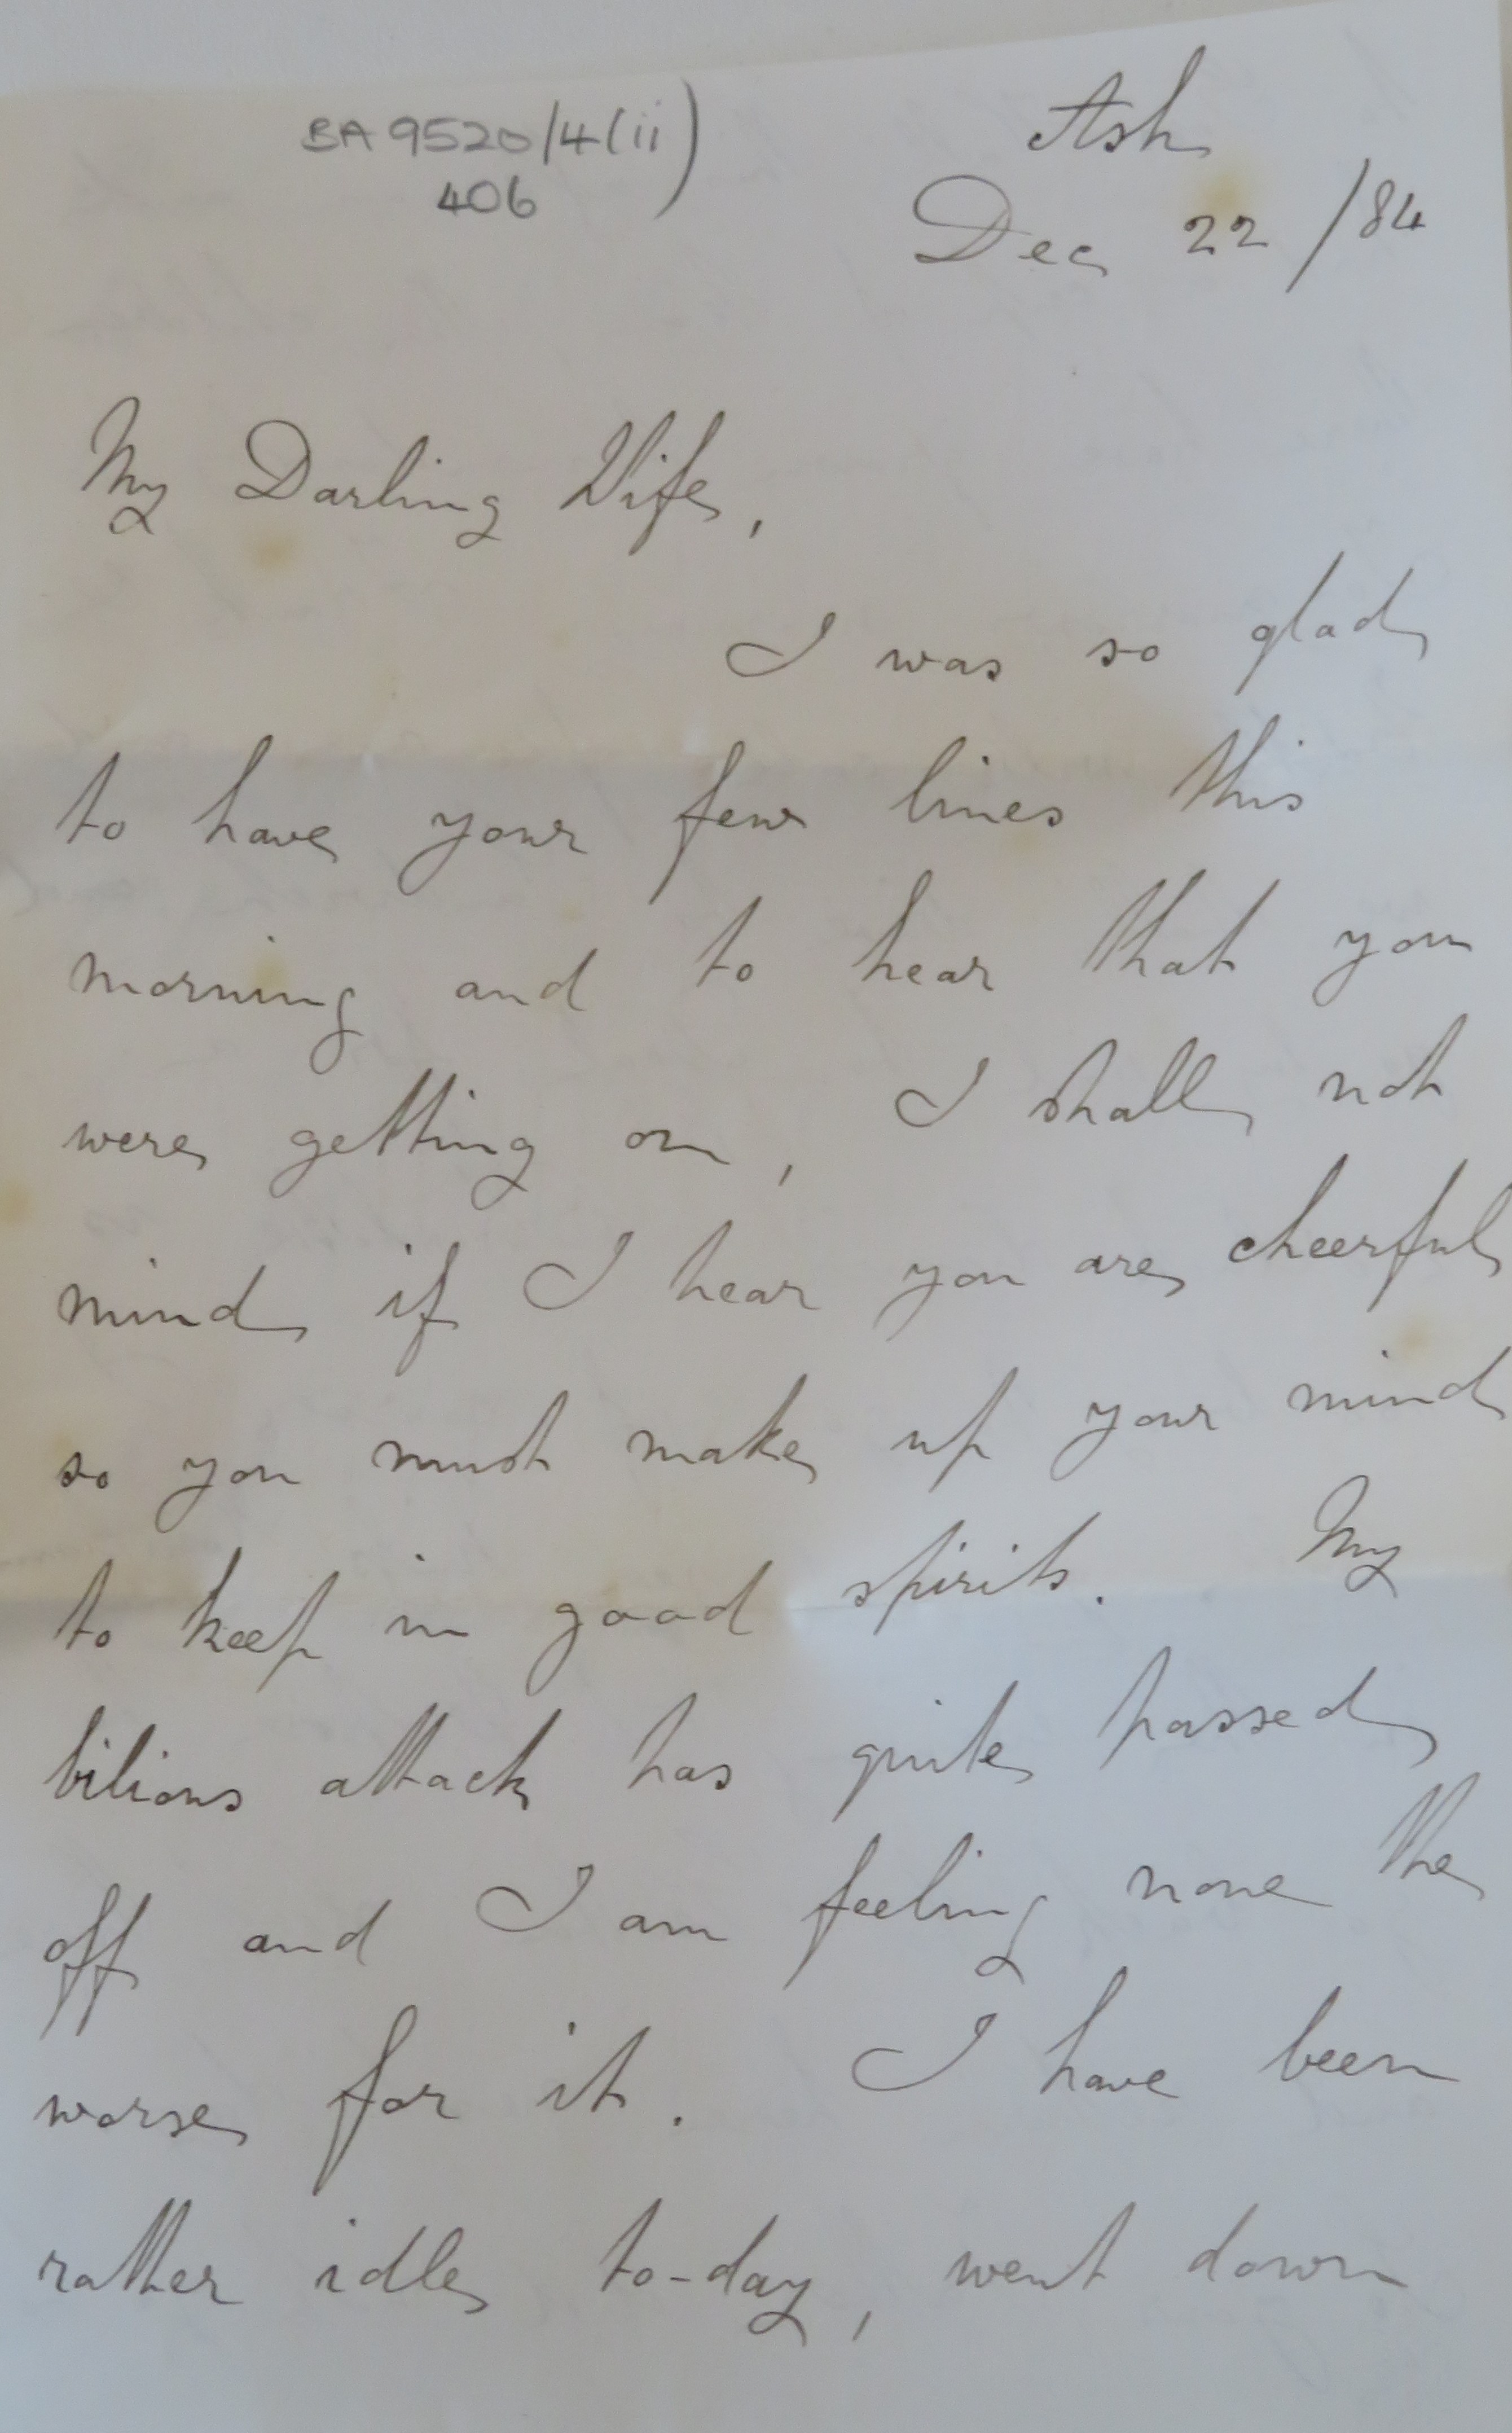 BA 9520/4(ii)
406
Ash
Dec 22 /84
My Darling Wife,
I was so glad
to have your few lines this
morning and to hear that you
were getting on, I shall not
mind if I hear you are cheerful
so you must make up your mind
to keep in good spirits. My
bilious attack has quite passed
off and I am feeling none the
worse for it. I have been
rather idle to-day, went down